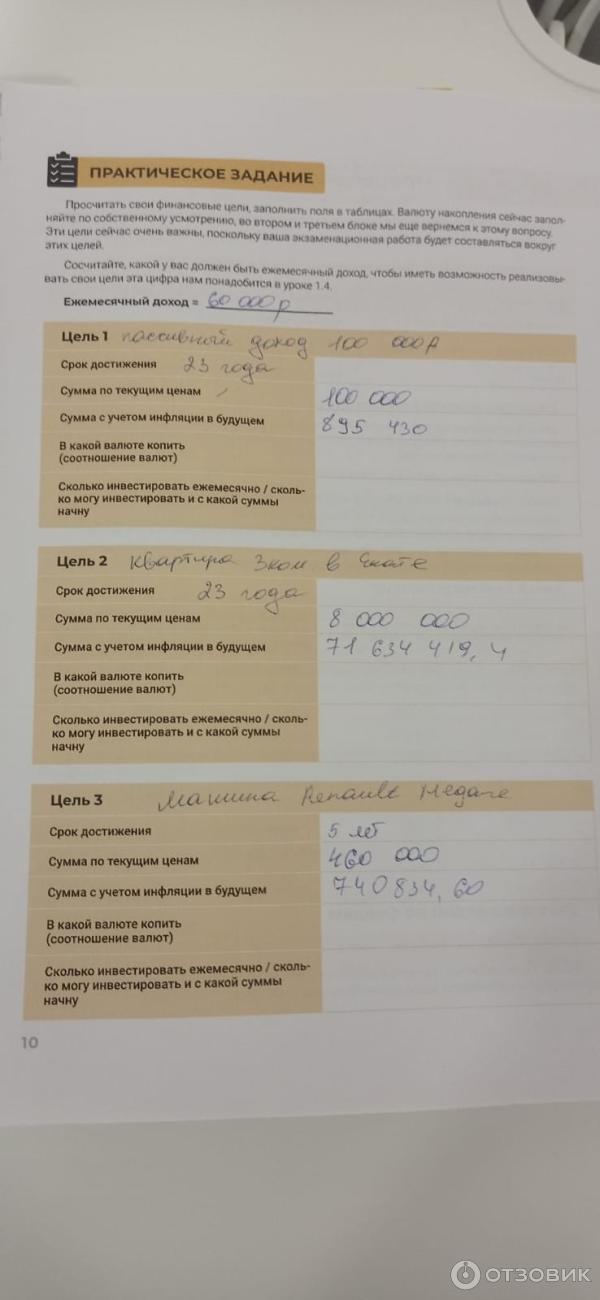 ПРАКТИЧЕСКОЕ ЗАДАНИЕ
Просчитать свои финансовые цели, заполнить поля в таблицах. Валюту накопления сейчас запол-
няйте по собственному усмотрению, во втором и третьем блоке мы еще вернемся к этому вопросу.
Эти цели сейчас очень важны, поскольку ваша экзаменационная работа будет составляться вокруг
этих целей.
Сосчитайте, какой у вас должен быть ежемесячный доход, чтобы иметь возможность реализовы-
вать свои цели эта цифра нам понадобится в уроке 1.4.
Ежемесячный доход = 60 000 р
Цель 1 пассивный доход 100 000р
Срок достижения 23 года
Сумма по текущим ценам 100 000
Сумма с учетом инфляции в будущем 895 430
В какой валюте копить
(соотношение валют)
Сколько инвестировать ежемесячно / сколь-
ко могу инвестировать и с какой суммы
начну
Цель 2 Квартира 3ком в Екате
Срок достижения 23 года
Сумма по текущим ценам 8 000 000
Сумма с учетом инфляции в будущем 71 634 419,4
В какой валюте копить
(соотношение валют)
Сколько инвестировать ежемесячно / сколь-
ко могу инвестировать и с какой суммы
начну
Цель 3 Машина Renault Megane
Срок достижения 5 лет
Сумма по текущим ценам 460 000
Сумма с учетом инфляции в будущем 740 834,60
В какой валюте копить
(соотношение валют)
Сколько инвестировать ежемесячно / сколь-
ко могу инвестировать и с какой суммы
начну
10
ОТЗОВИК